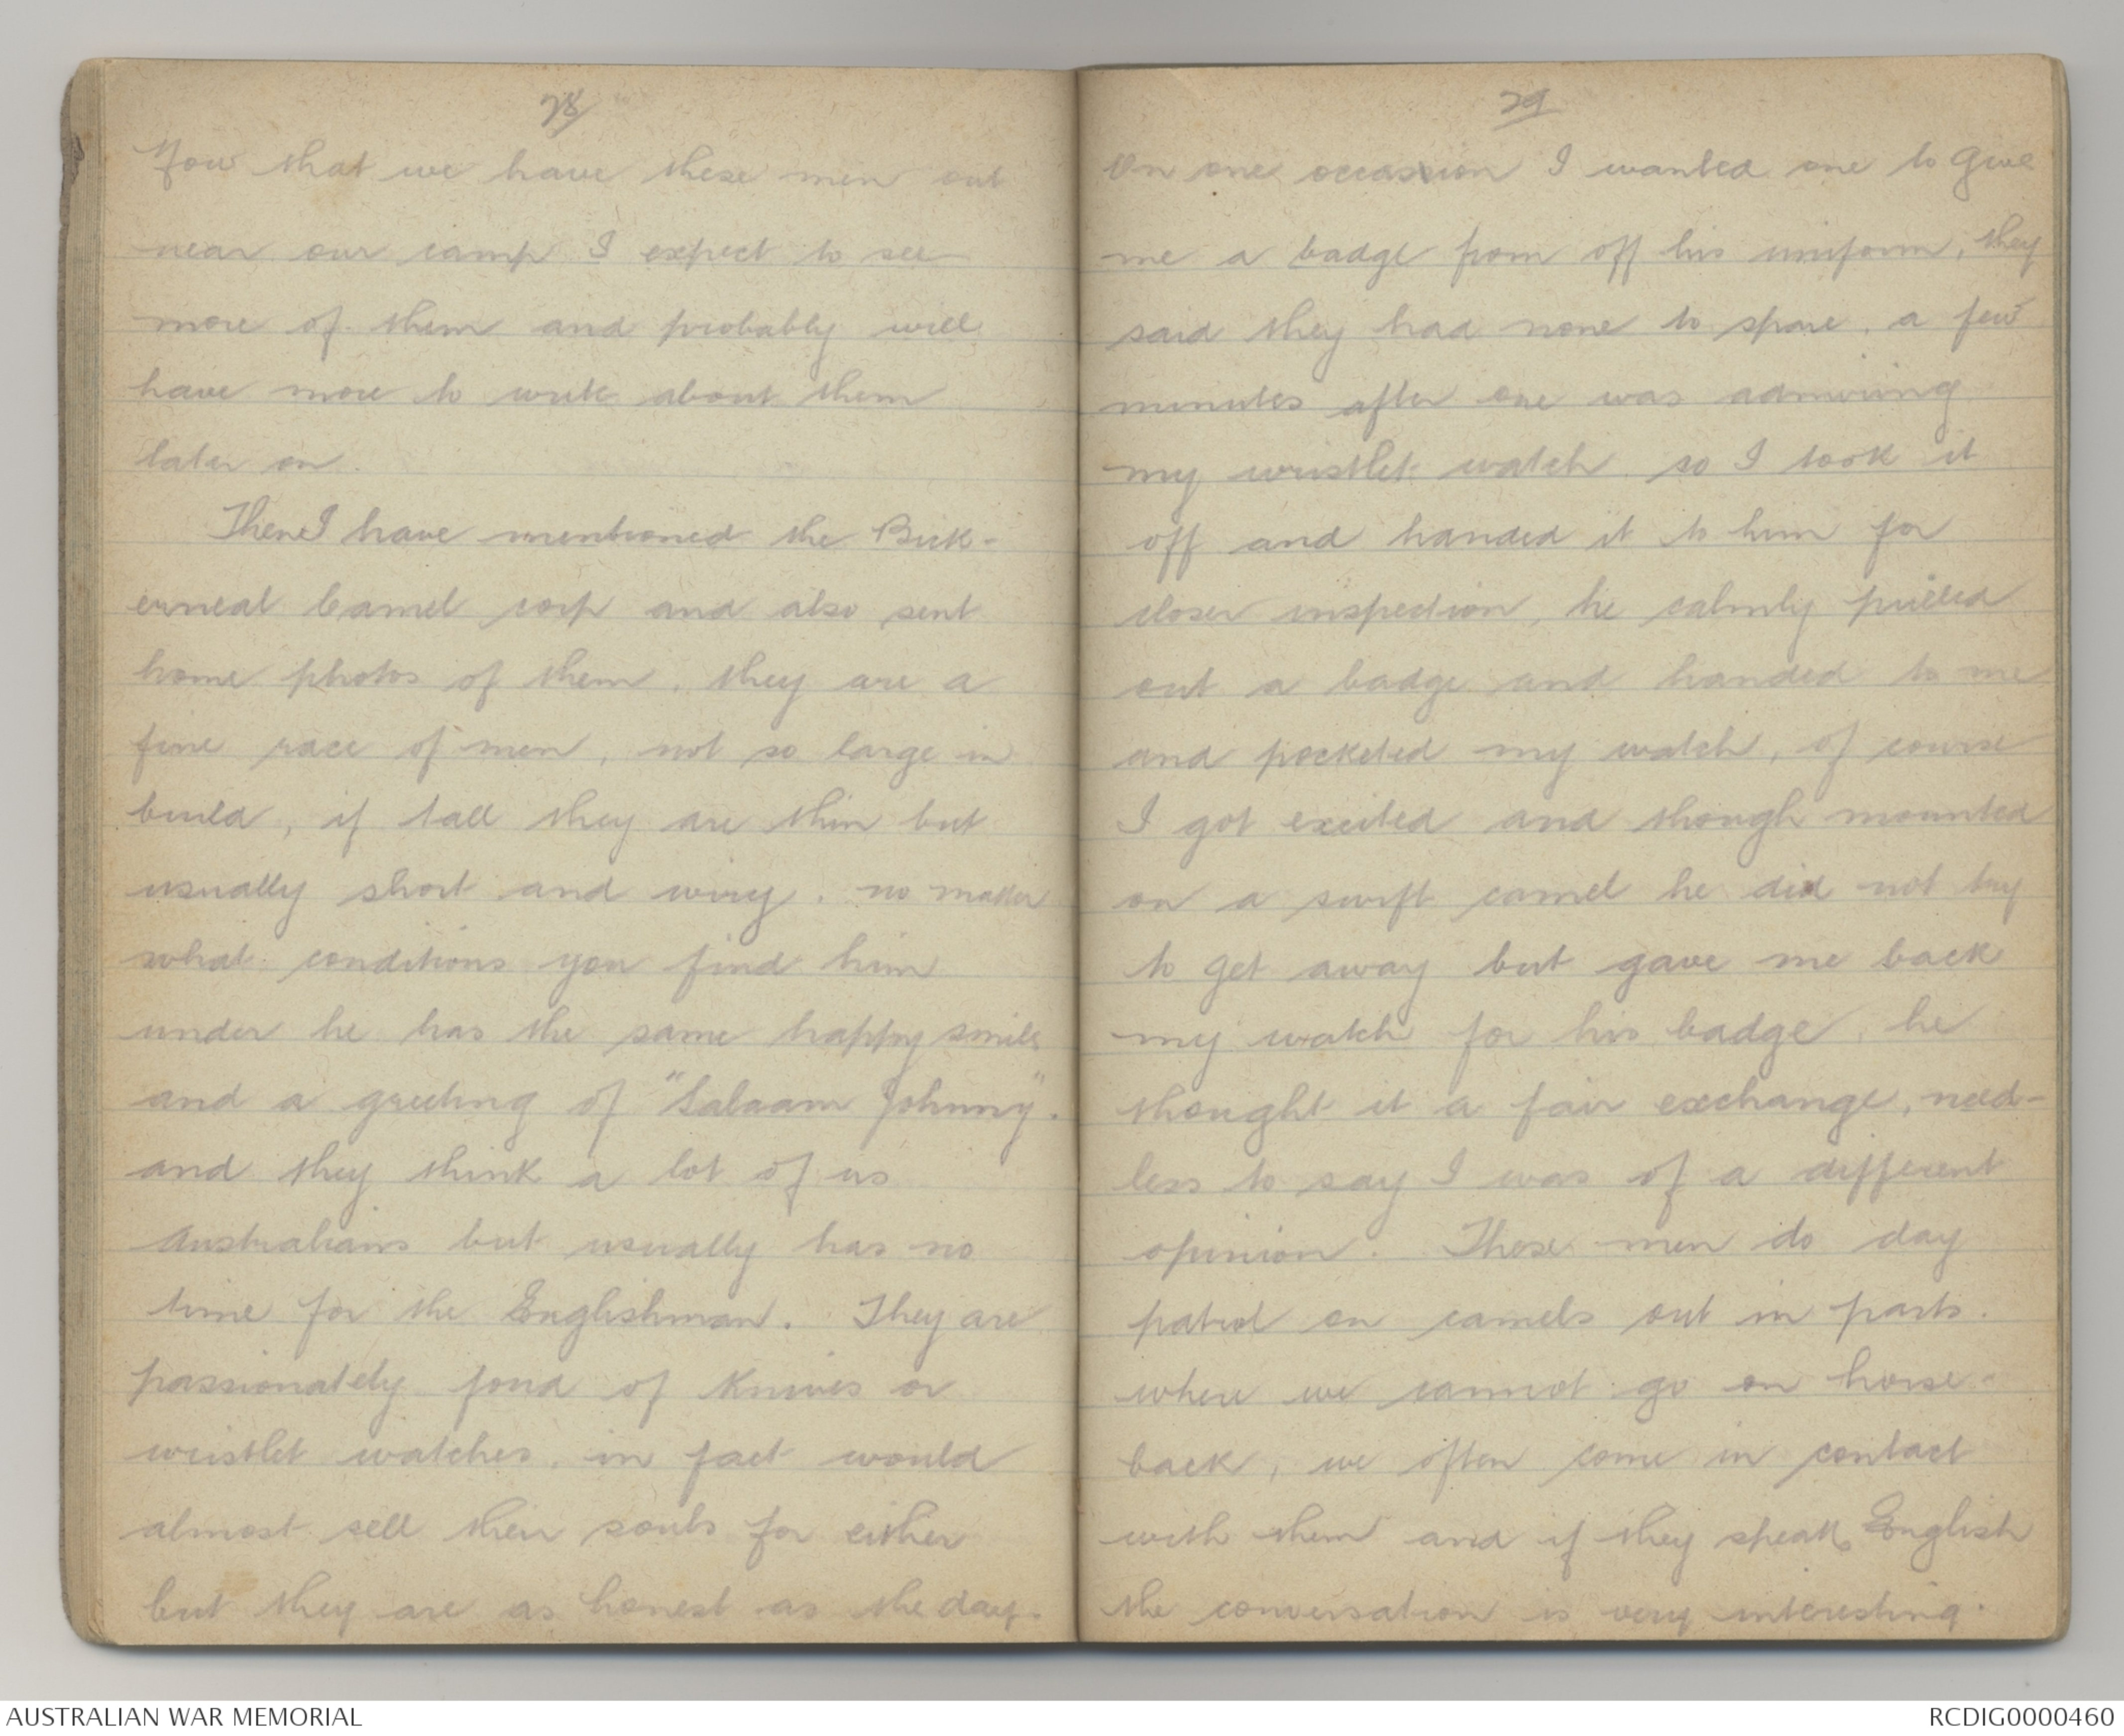 28
Now that we have these men out
near our camp I expect to see
more of them and probably will
have more to write about them
later on.
Then I have mentioned the Bick-
erneat Camel corp and also sent
home photos of them, they are a
fine race of men, not so large in
build, if tall they are thin but
usually short and wiry. no matter
what conditions you find him
under he has the same happy smile
and a greeting of "Salaam Johnny".
and they think a lot of us
Australians but usually has no
time for the Englishman. They are
passionately fond of knives or
wristlet watches, in fact would
almost sell their souls for either
but they are as honest as the day.
29
On one occassion I wanted one to give
me a badge from off his uniform, they
said they had none to spare, a few
minutes after one was admiring
my wristlet watch so I took it
off and handed it to him for
closer inspection, he calmly pulled
out a badge and handed to me
and pocketed my watch, of course
I got excited and though mounted
on a swift camel he did not try
to get away but gave me back
my watch for his badge, he
thought it a fair exchange, need-
less to say I was of a different
opinion. These men do day
patrol on camels out in parts.
where we cannot go on horse-
back, we often come in contact
with them and if they speak English
the conversation is very interesting.
AUSTRALIAN WAR MEMORIAL
RCDIG0000460